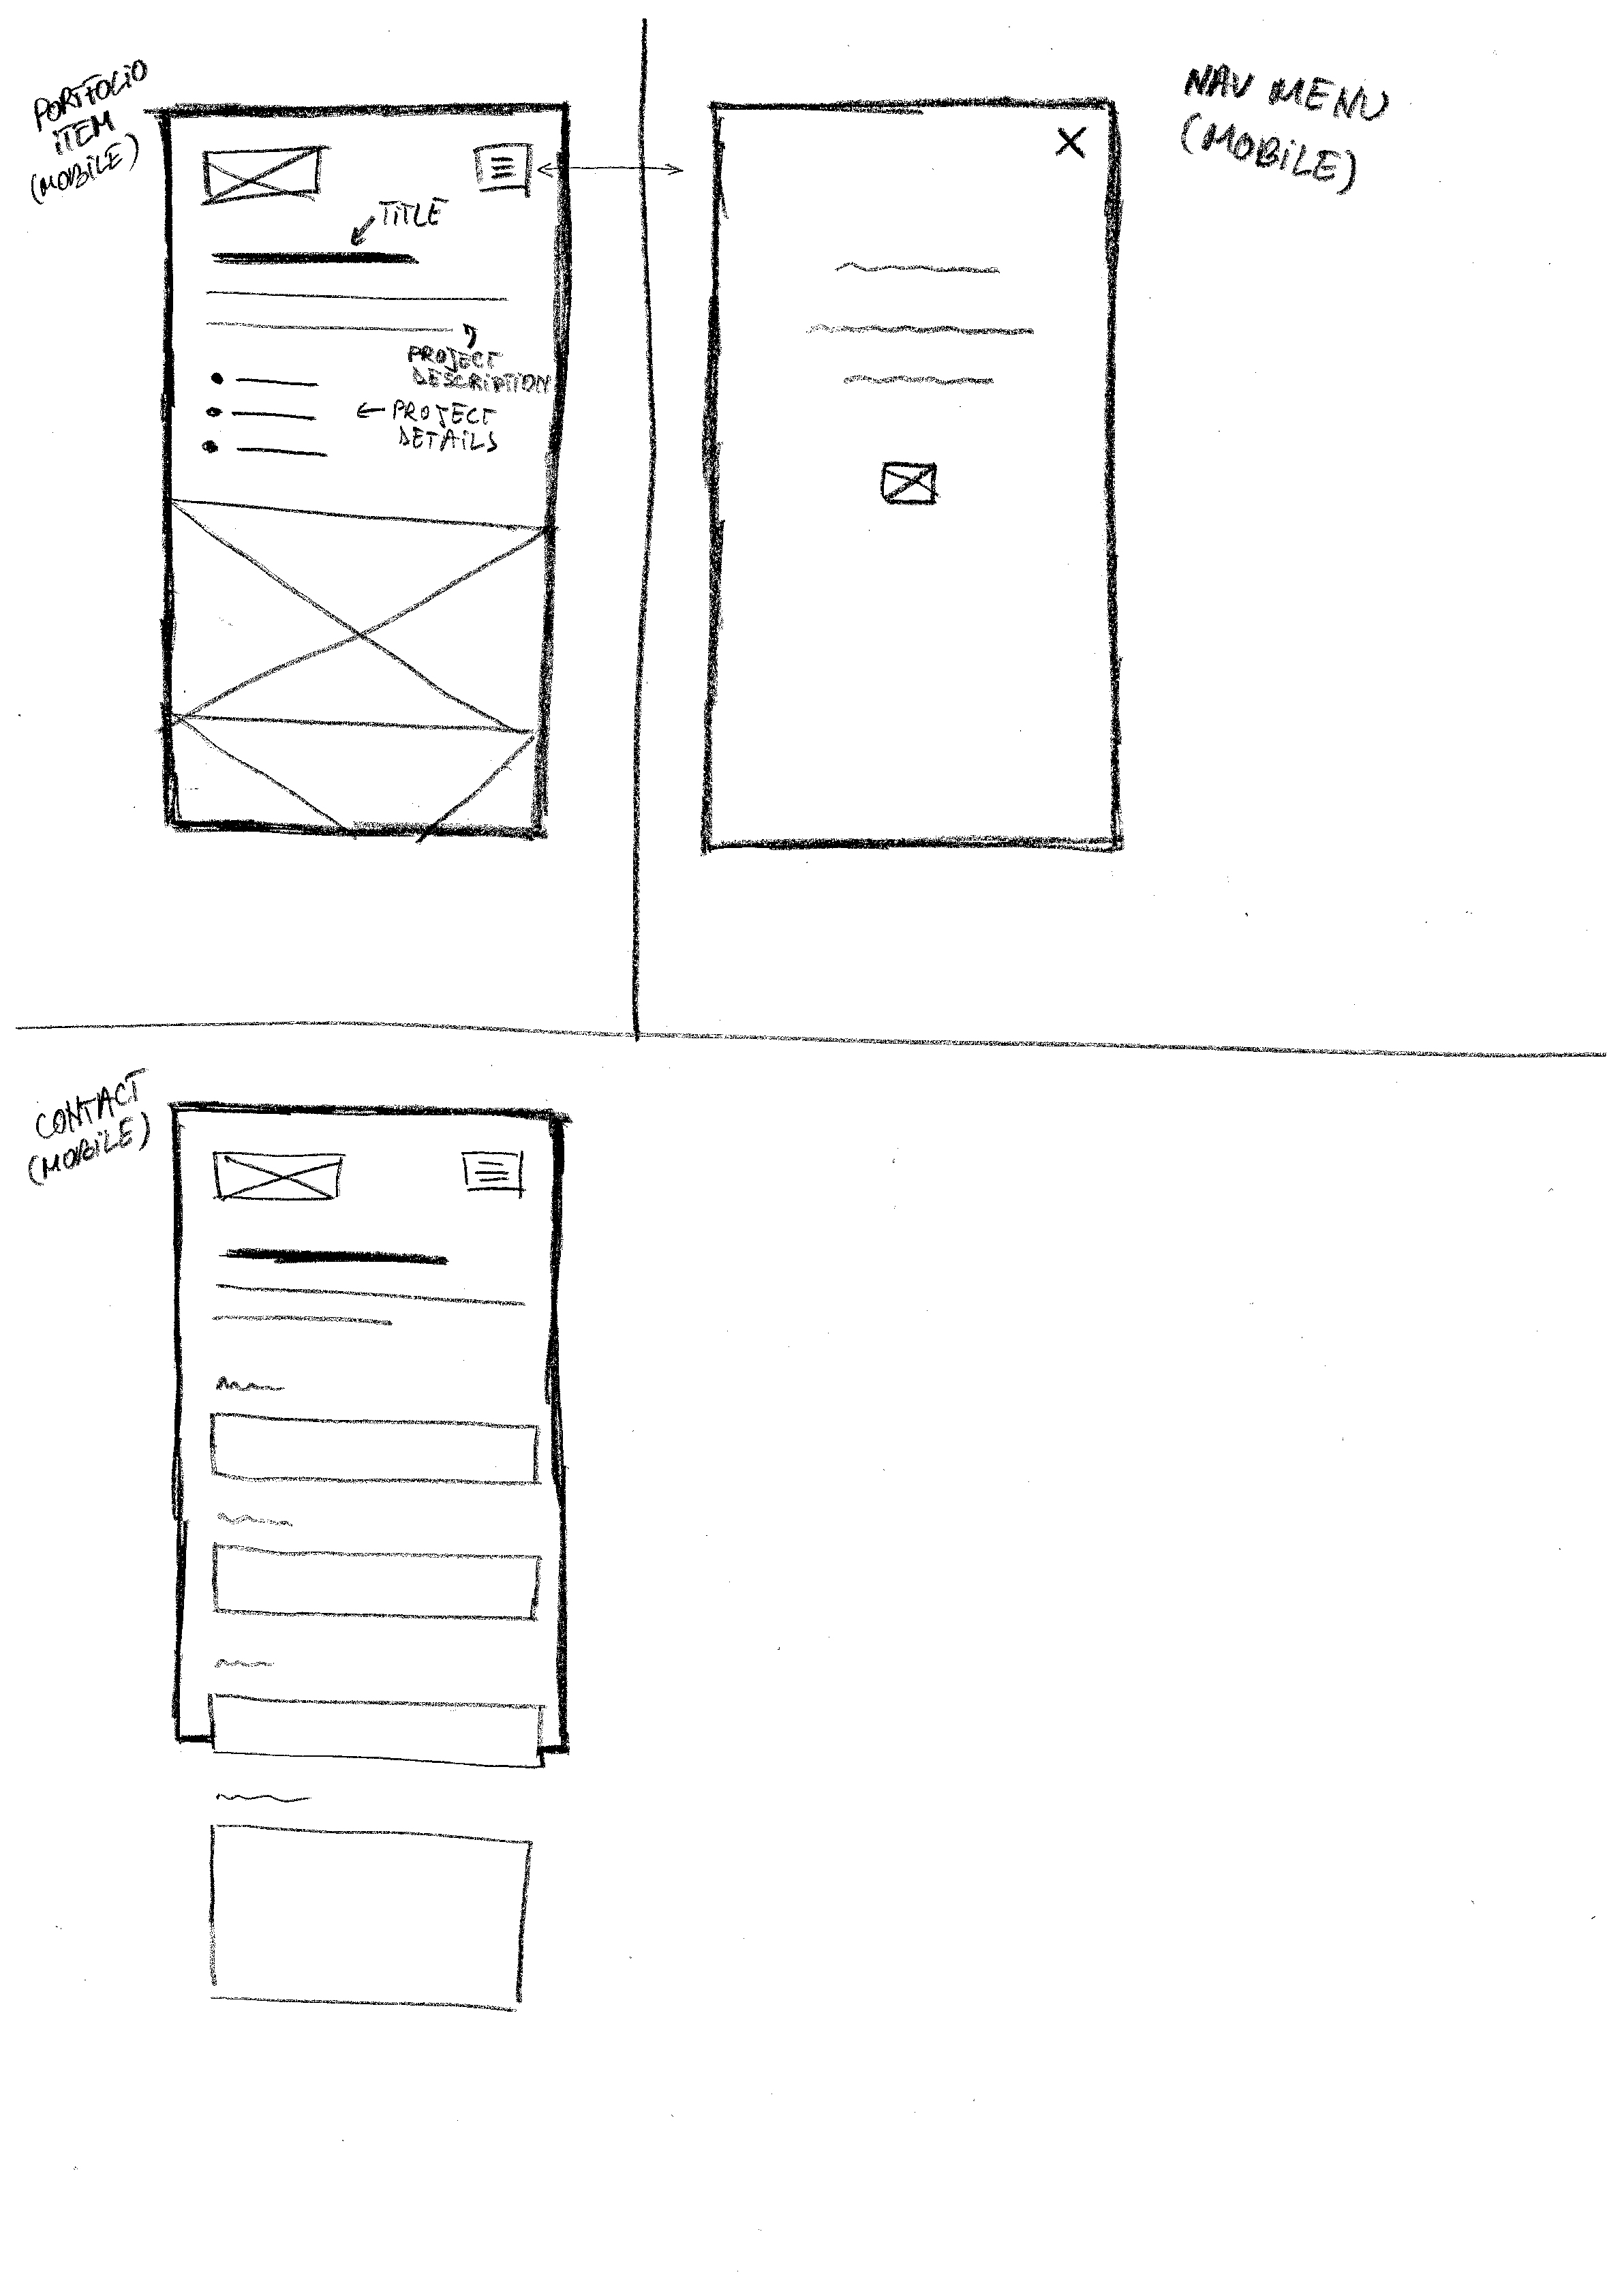 PORTFOLIO
ITEM
(MOBILE)
TITLE
PROJECT
DESCRIPTION
PROJECT
DETAILS
NAV MENU
(MOBILE)
CONTACT
(MOBILE)